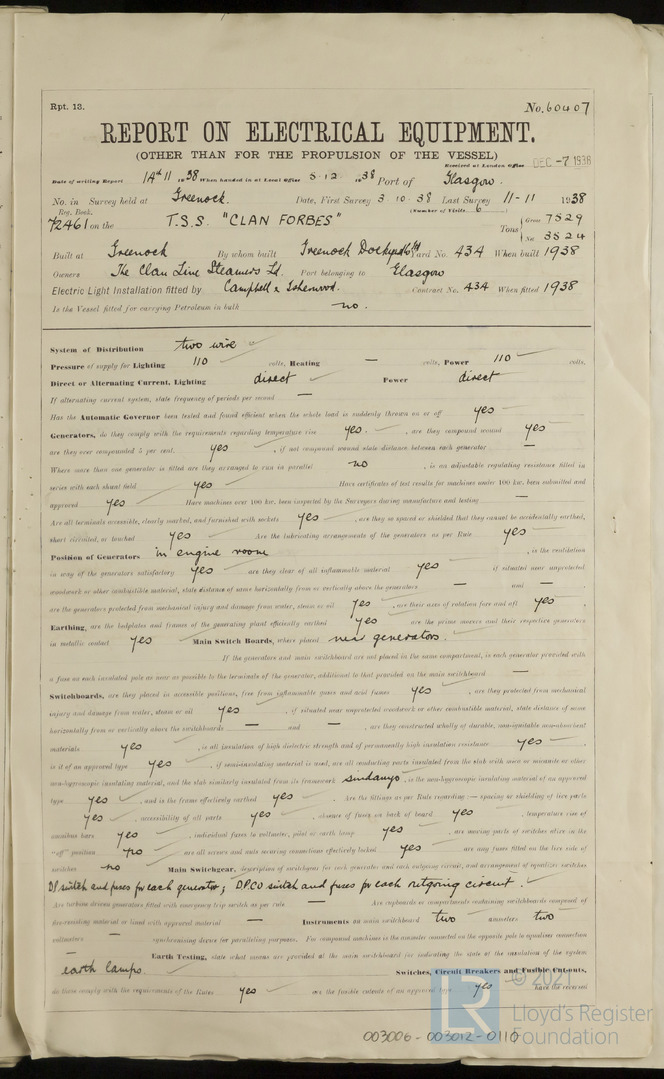 Rpt. 13.
No. 60407
REPORT ON ELECTRICAL EQUIPMENT.
(OTHER THAN FOR THE PROPULSION OF THE VESSEL)
Received at London Office DEC -7 1938
Date of writing Report 1938 When handed in at Local Office 5.12.1938 Port of Glasgow.
No. in Survey held at Greenock. Date, First Survey 3.10.38 Last Survey 11-11 1938
Reg. Book. (Number of Visits 6)
72461 on the T.S.S. "CLAN FORBES" Tons Gross 7529
Net 3524
Built at Greenock By whom built Greenock Dockyard Co Ltd Yard No. 434 When built 1938
Owners The Clan Line Steamers Ld. Port belonging to Glasgow
Electric Light Installation fitted by Campbell & Isherwood. Contract No. 434 When fitted 1938
Is the Vessel fitted for carrying Petroleum in bulk no.
System of Distribution two wire
Pressure of supply for Lighting 110 volts, Heating — volts, Power 110 volts.
Direct or Alternating Current, Lighting direct Power direct
If alternating current system, state frequency of periods per second —
Has the Automatic Governor been tested and found efficient when the whole load is suddenly thrown on or off yes
Generators, do they comply with the requirements regarding temperature rise yes. , are they compound wound yes
are they over compounded 5 per cent. yes , if not compound wound state distance between each generator —
Where more than one generator is fitted are they arranged to run in parallel no , is an adjustable regulating resistance fitted in
series with each shunt field yes Have certificates of test results for machines under 100 kw. been submitted and
approved yes Have machines over 100 kw. been inspected by the Surveyors during manufacture and testing —
Are all terminals accessible, clearly marked, and furnished with sockets yes , are they so spaced or shielded that they cannot be accidentally earthed,
short circuited, or touched yes Are the lubricating arrangements of the generators as per Rule yes
Position of Generators in engine room , is the ventilation
in way of the generators satisfactory yes are they clear of all inflammable material yes if situated near unprotected
woodwork or other combustible material, state distance of same horizontally from or vertically above the generators — and —
are the generators protected from mechanical injury and damage from water, steam or oil yes , are their axes of rotation fore and aft yes
Earthing, are the bedplates and frames of the generating plant efficiently earthed yes are the prime movers and their respective generators
in metallic contact yes Main Switch Boards, where placed near generators.
If the generators and main switchboard are not placed in the same compartment, is each generator provided with
a fuse on each insulated pole as near as possible to the terminals of the generator, additional to that provided on the main switchboard —
Switchboards, are they placed in accessible positions, free from inflammable gases and acid fumes yes , are they protected from mechanical
injury and damage from water, steam or oil yes , if situated near unprotected woodwork or other combustible material, state distance of same
horizontally from or vertically above the switchboards — and — , are they constructed wholly of durable, non-ignitable non-absorbent
materials yes , is all insulation of high dielectric strength and of permanently high insulation resistance yes
is it of an approved type yes , if semi-insulating material is used, are all conducting parts insulated from the slab with mica or micanite or other
non-hygroscopic insulating material, and the slab similarly insulated from its framework sindanyo , is the non-hygroscopic insulating material of an approved
type yes , and is the frame effectively earthed yes Are the fittings as per Rule regarding:— spacing or shielding of live parts
yes , accessibility of all parts yes , absence of fuses on back of board yes , temperature rise of
omnibus bars yes , individual fuses to voltmeter, pilot or earth lamp yes , are moving parts of switches alive in the
"off" position no are all screws and nuts securing connections effectively locked yes are any fuses fitted on the live side of
switches no Main Switchgear, description of switchgear for each generator and each outgoing circuit, and arrangement of equalizer switches
DP switch and fuses for each generator; DPCO switch and fuses for each outgoing circuit.
Are turbine driven generators fitted with emergency trip switch as per rule — Are cupboards or compartments containing switchboards composed of
fire-resisting material or lined with approved material — Instruments on main switchboard two ammeters two
voltmeters — synchronising device for paralleling purposes. For compound machines is the ammeter connected on the opposite pole to equalizer connection
— Earth Testing, state what means are provided at the main switchboard for indicating the state of the insulation of the system
earth lamps. Switches, Circuit Breakers and Fusible Cut-outs,
do these comply with the requirements of the Rules yes are the fusible cutouts of an approved type yes have the reversed
© 2021
LR Lloyd's Register
Foundation
003006 - 003012 - 0110